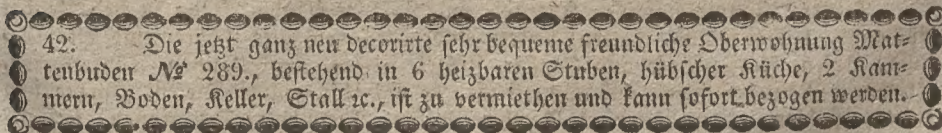 42. Die jetzt ganz neu decorirte sehr bequeme freundliche Oberwohnung Mat-
tenbuden № 289., bestehend in 6 heizbaren Stuben, hübscher Küche, 2 Kam-
mern, Boden, Keller, Stall ꝛc., ist zu vermiethen und kann sofort bezogen werden.